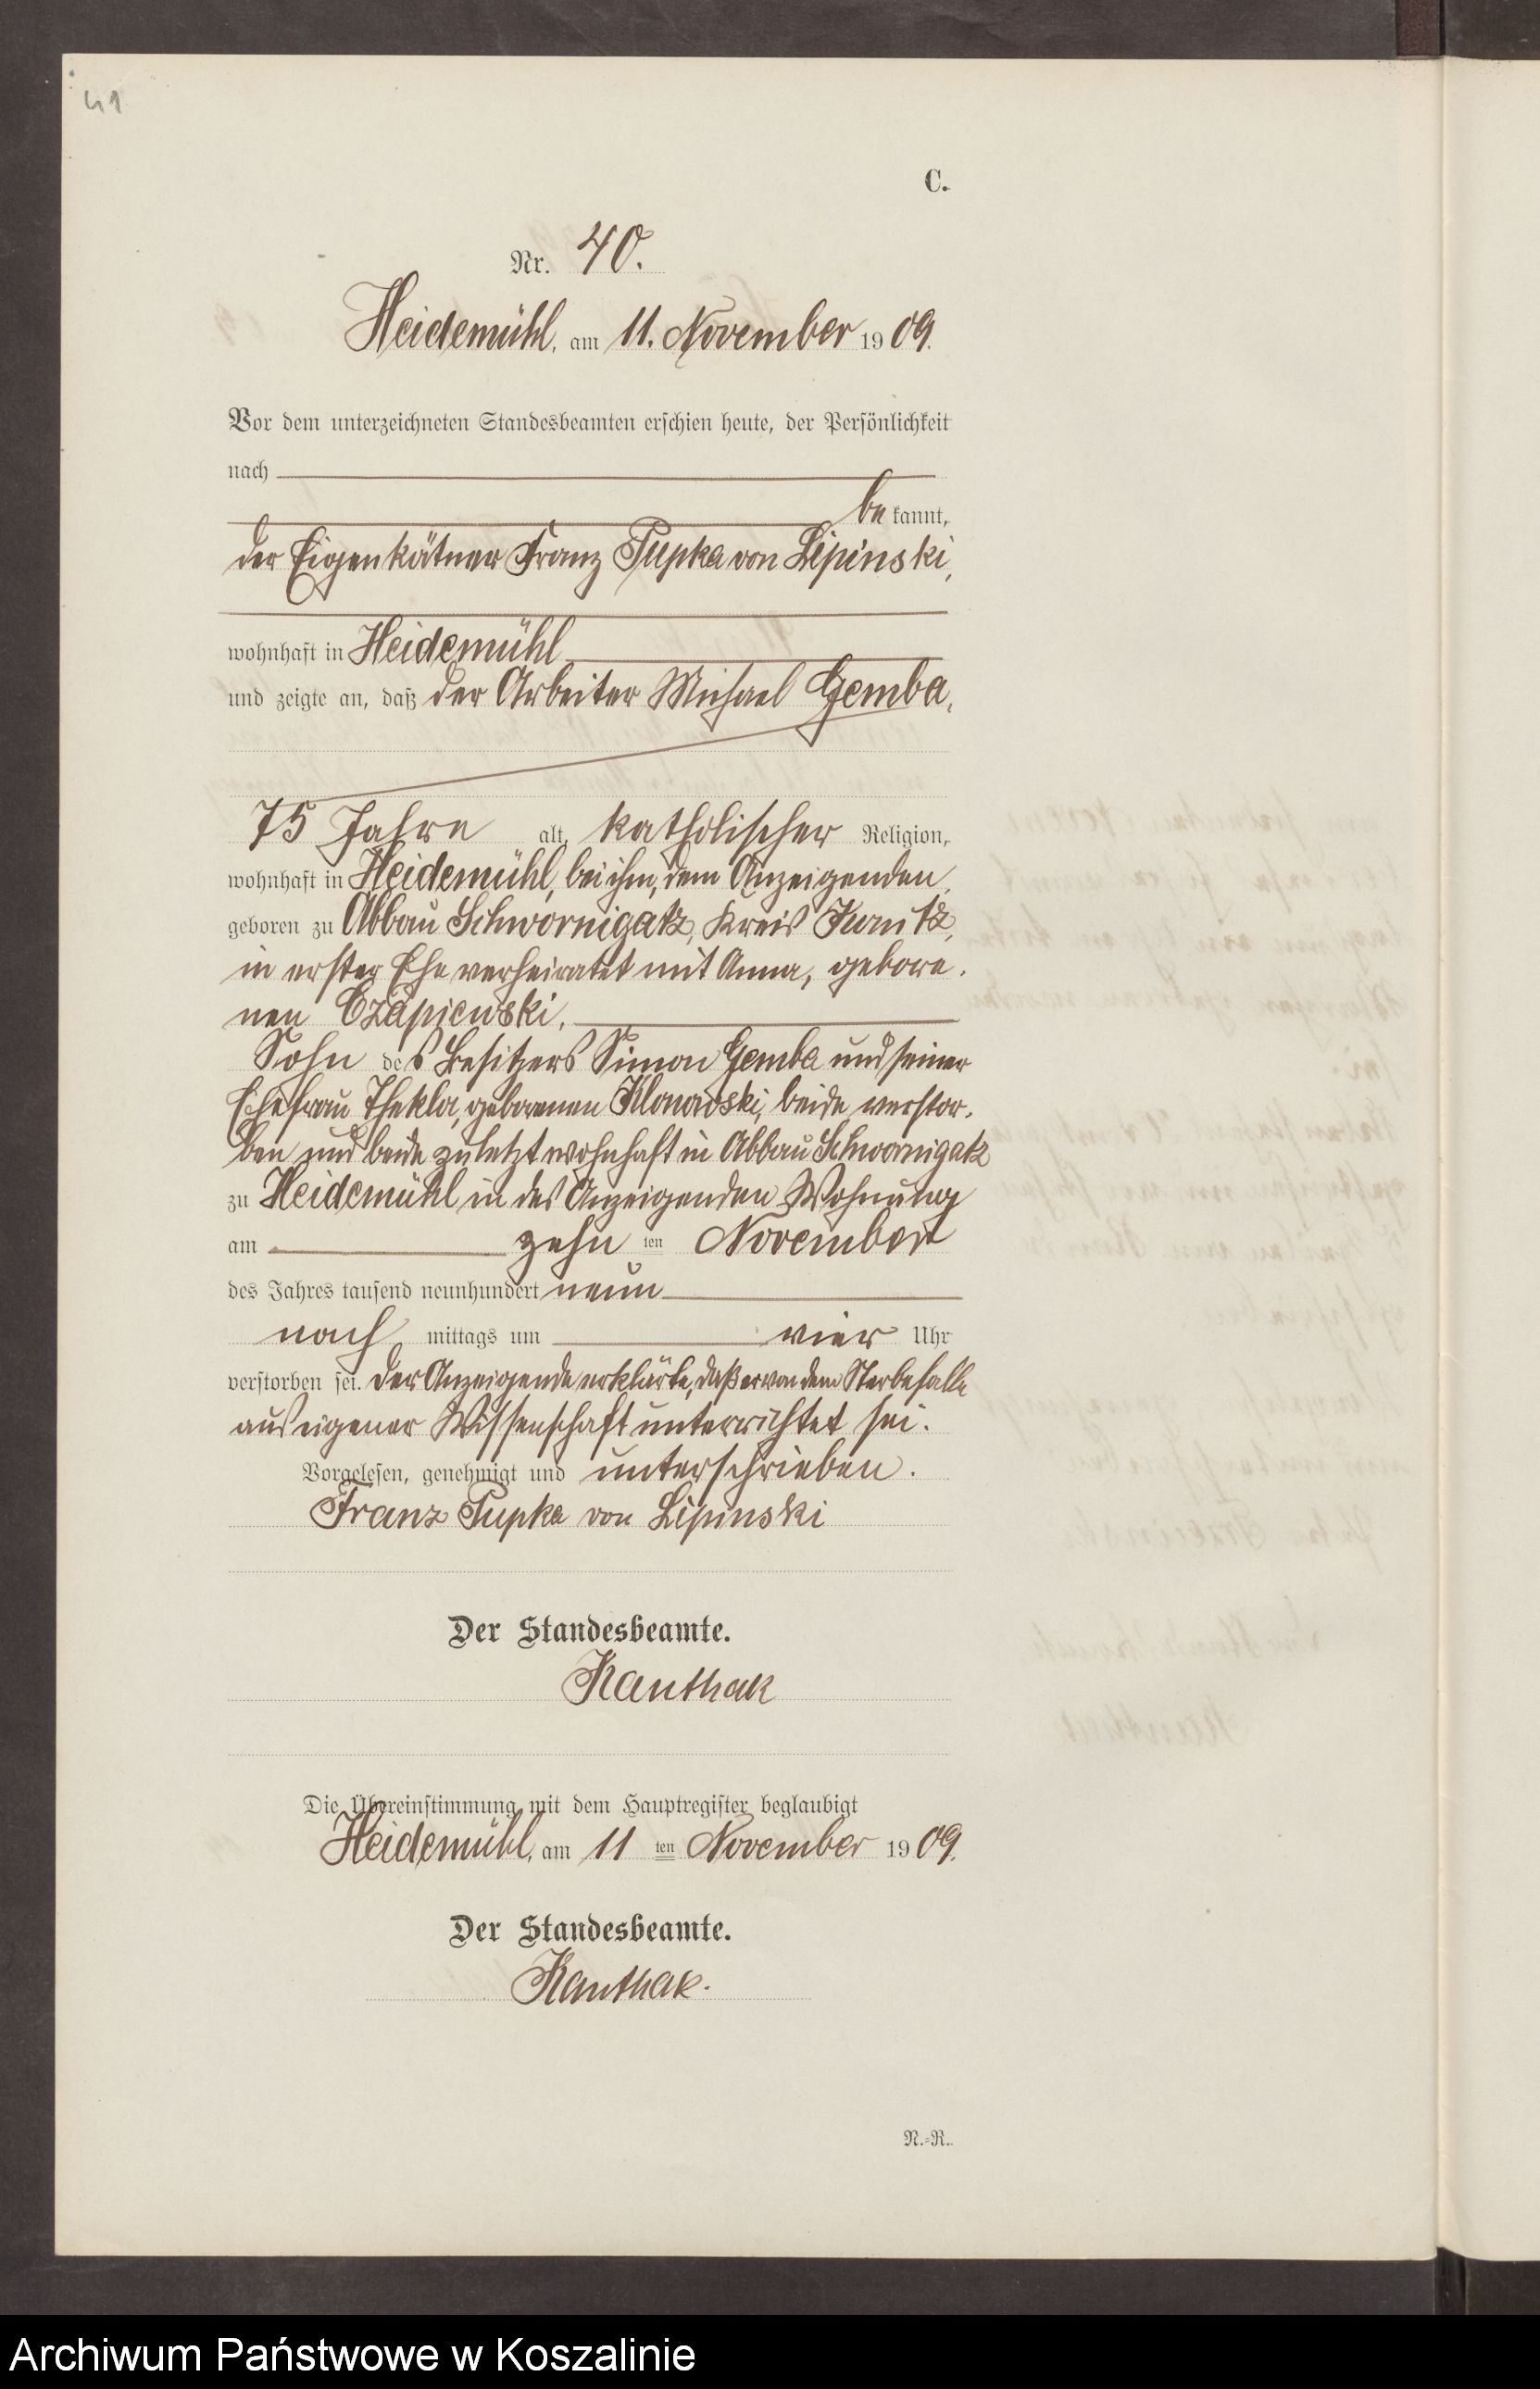 41
C.
Nr. 40.
Heidemühl, am 11. November 1909.
Vor dem unterzeichneten Standesbeamten erschien heute, der Persönlichkeit
nach
be kannt,
der Eigenkätner Franz Pupka von Lipinski,
wohnhaft in Heidemühl
und zeigte an, daß der Arbeiter Michael Gemba,
75 Jahre alt, katholischer Religion,
wohnhaft in Heidemühl, bei ihm, dem Anzeigenden,
geboren zu Abbau Schwornigatz, Kreis Konitz,
in erster Ehe verheiratet mit Anna, gebore-
nen Czapiewski,
Sohn des Besitzers Simon Gemba und seiner
Ehefrau Thekla, geborenen Klonowski, beide verstor-
ben und beide zuletzt wohnhaft in Abbau Schwornigatz
zu Heidemühl in des Anzeigenden Wohnung
am zehn ten November
des Jahres tausend neunhundert neun
nach mittags um vier Uhr
verstorben sei. Der Anzeigende erklärte, daß er von dem Sterbefalle
aus eigener Wissenschaft unterrichtet sei.
Vorgelesen, genehmigt und unterschrieben.
Franz Pupka von Lipinski
Der Standesbeamte.
Kanthak
Die Übereinstimmung mit dem Hauptregister beglaubigt
Heidemühl, am 11 ten November 1909.
Der Standesbeamte.
Kanthak.
N.-R.
Archiwum Państwowe w Koszalinie